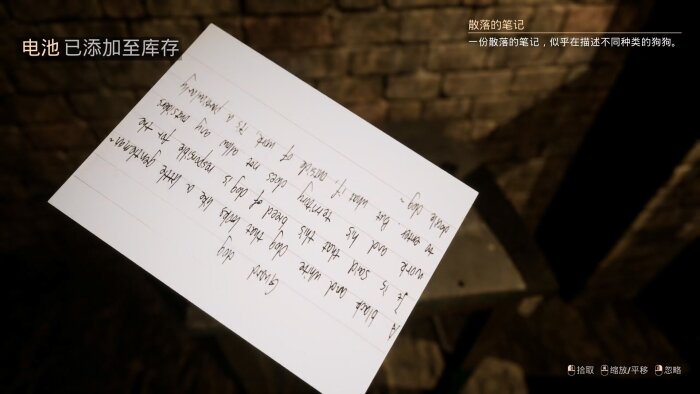 电池 已添加至库存
散落的笔记
一份散落的笔记，似乎在描述不同种类的狗狗。
Guard dog
A black and white dog that looks like a little gentleman~
It is said that this breed of dog is responsible for the
work and his territory does not allow any outsiders
to enter. But what if outside of work, It's a particularly
docile dog~
拾取 缩放/平移 忽略